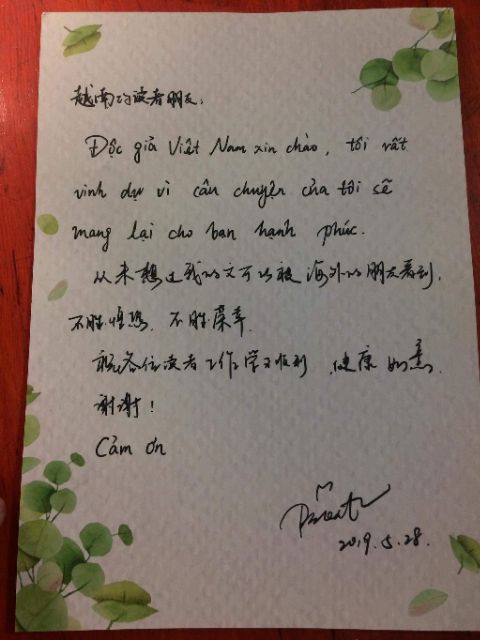 越南的读者朋友:
Độc giả Việt Nam xin chào, tôi rất
vinh dự vì câu chuyện của tôi sẽ
mang lại cho bạn hạnh phúc.
从未想过我的文可以被海外的朋友看到,
不胜惶恐, 不胜荣幸.
祝各位读者工作学习顺利, 健康如意.
谢谢!
Cảm ơn
2019.5.28.